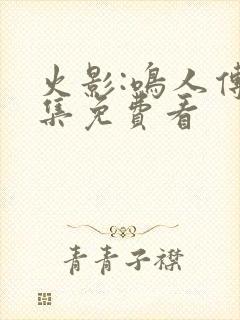 火影:鸣人傳
集免費看
青青子襟